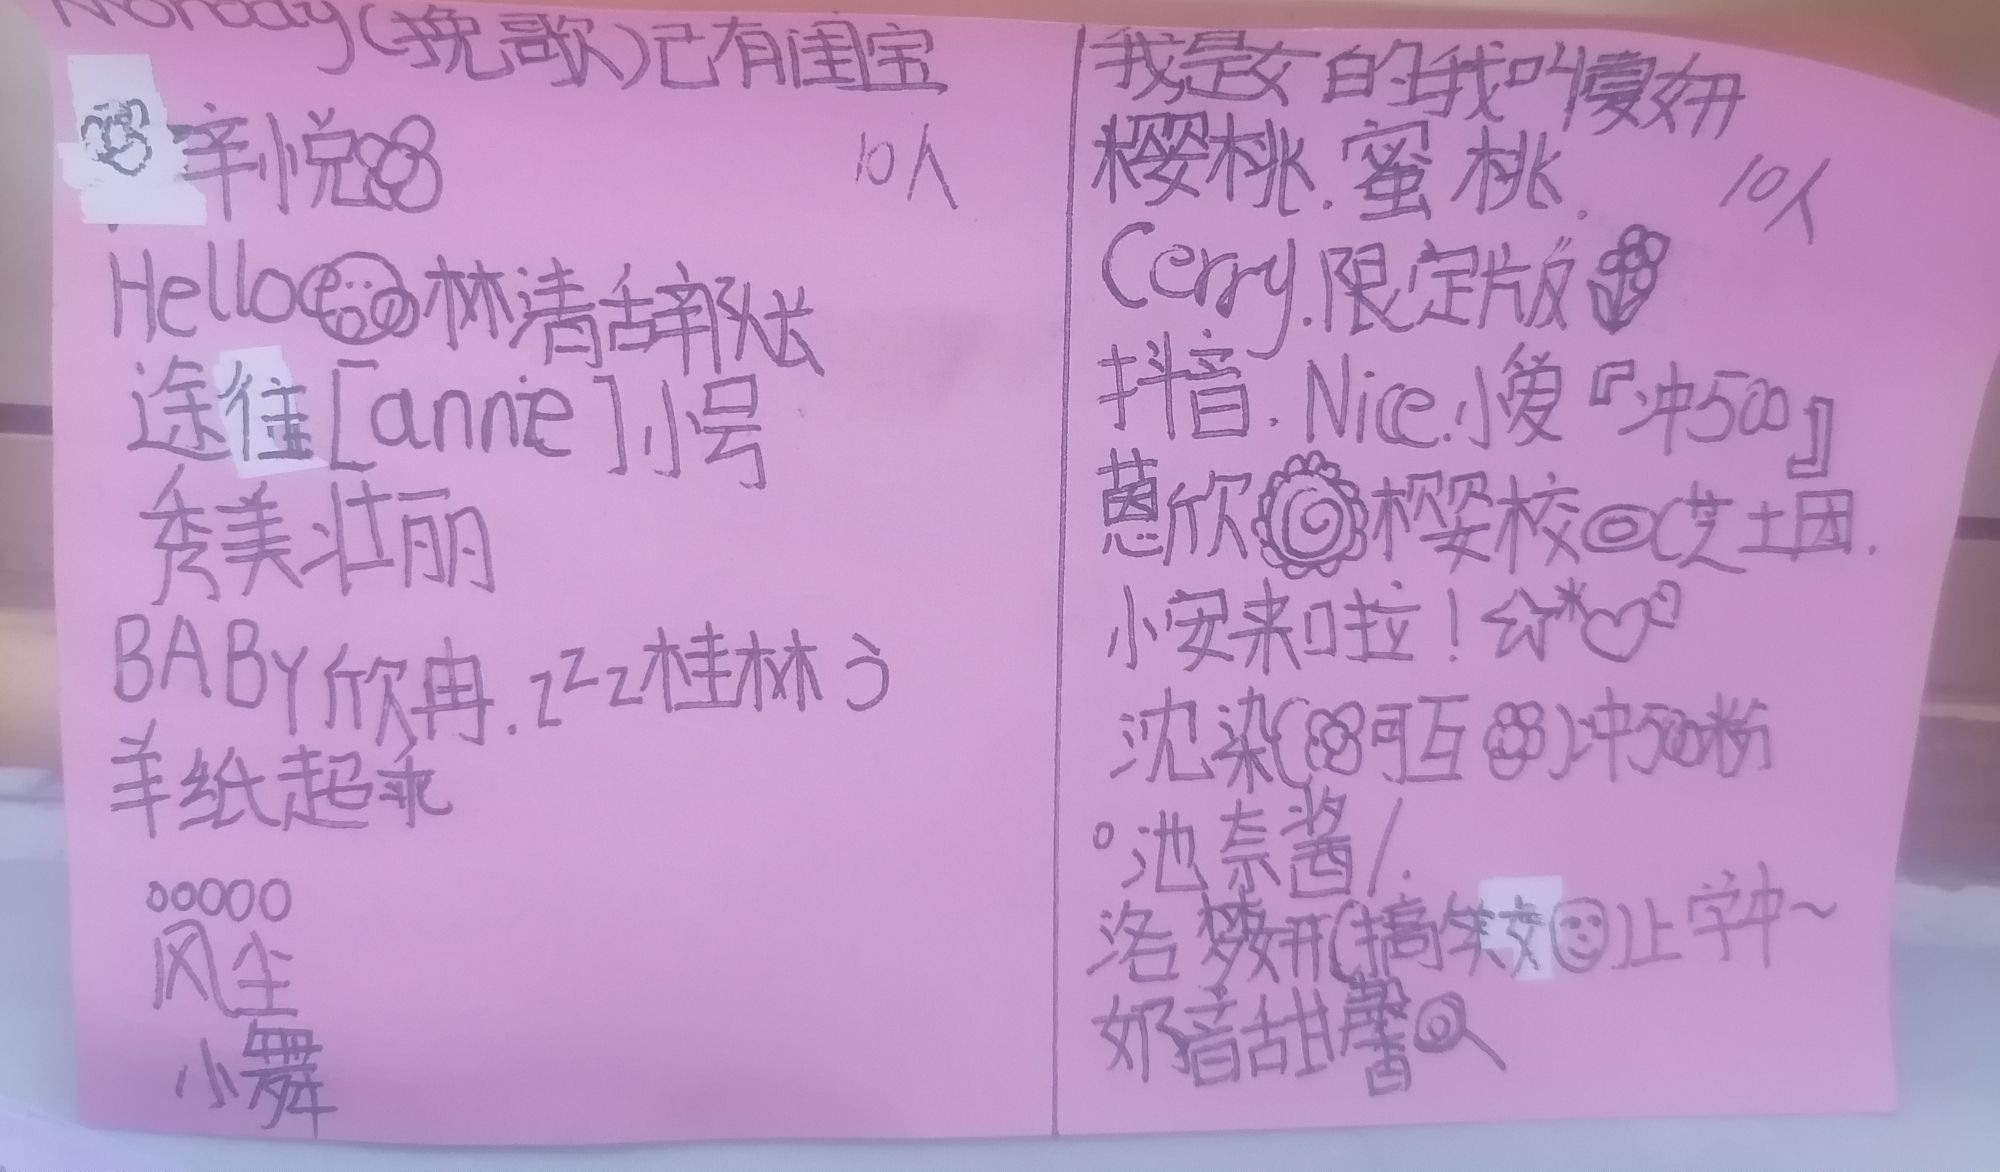 (挽歌)已有闺宝
辛小悦
10人
Hello 林清辞队长
途往[annie]小号
秀美壮丽
BABY欣冉.zzz桂林
羊纸起乖
ooooo
风尘
小舞
我是女的我叫夏妍
樱桃.蜜桃.
10人
Cerry.限定版
抖音.Nice.小爱『冲500』
蒽欣 樱校(芝士团.
小安来啦!☆*♡
沈染(可互)冲500粉
°池奈酱/.
洛梦妍(搞笑女)上学中~
奶音甜馨